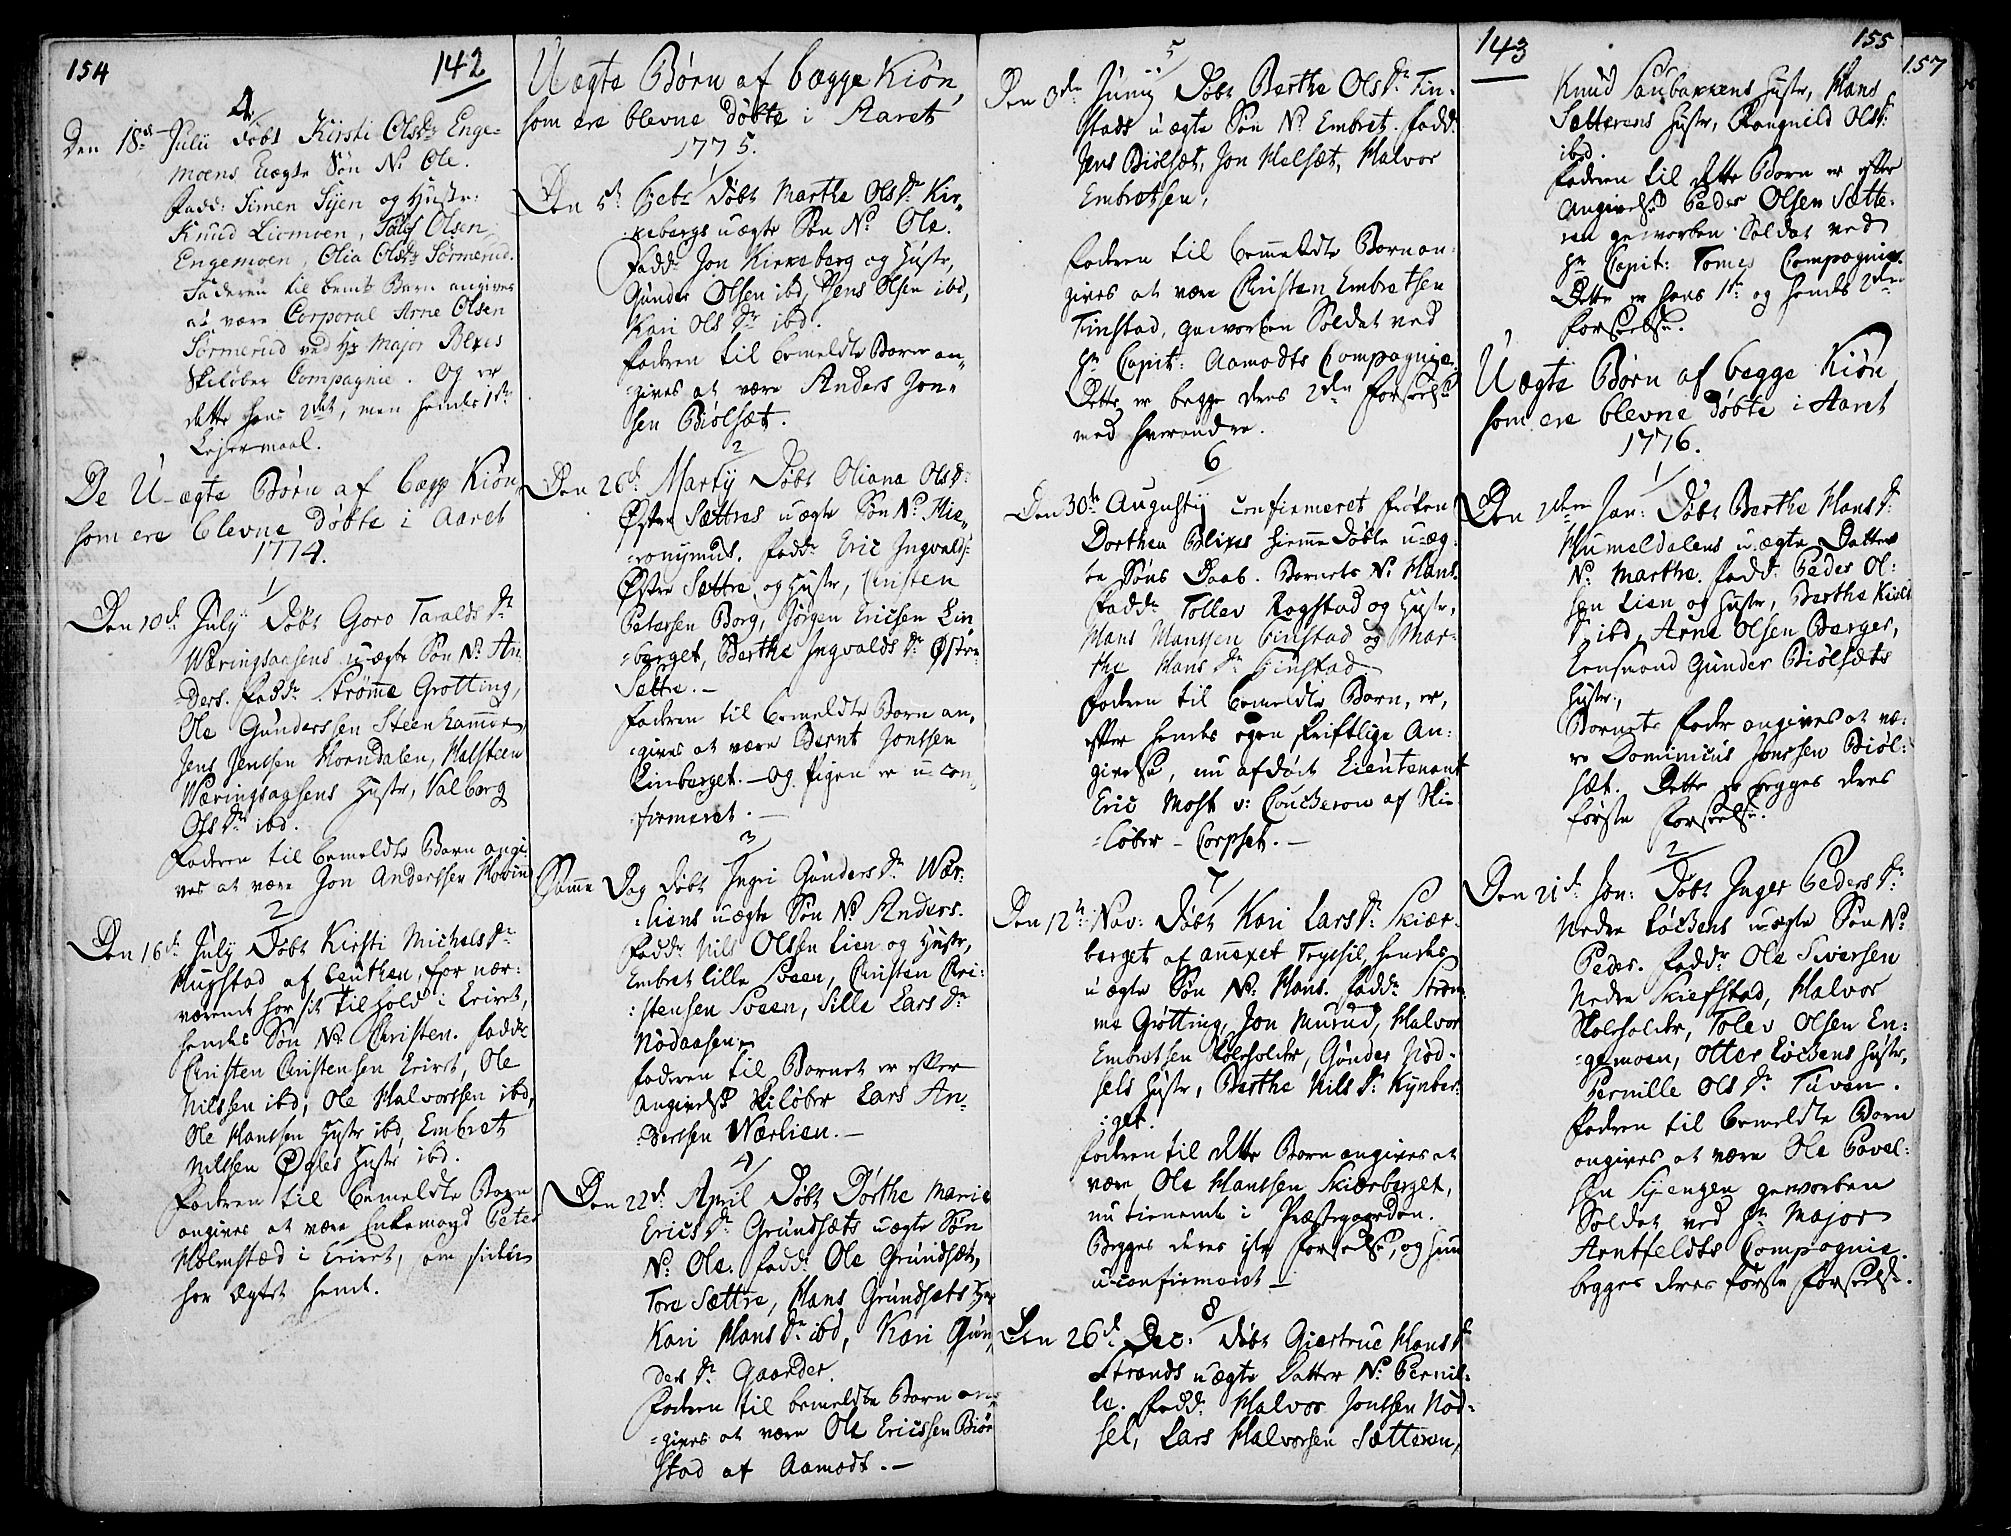 154
142
4
Den 18de Julii døbt Kirsti Olsdr Enge-
moens Uægte Søn No Ole.
Fadd: Simen Sijen og Hustr:
Knud Liomoen, Tolef Olsen
Engemoen, Olia Olsdr Sörmerud.
Faderen til bemte Barn angives
at være Corporal Arne Olsen
Sörmerud ved Hr Major Blixes
Skiløber Compagnie. Og er
dette hans 2det, men hendes 1ste
Lejermaal.
De U-ægte Børn af begge Kiön,
som ere blevne døbte i Aaret
1774.
1
Den 10de July Døbt Goro Taralds Dr
Wæringsaasens uægte Søn No An-
ders. Faddr Strømme Grøtting,
Ole Gunderssen Steenhammer
Jens Jenssen Horndalen, Halsteen
Wæringsaasens Hustr, Valborg
Ols Dr ibd.
Faderen til bemeldte Barn angi-
ves at være Jon Anderssen Hovin
2
Den 16de July Døbt Kirsti Michels Dr
Mugstad af Leuthen, for nær-
værende har sit tilhold i Leiret,
hendes Søn No Christen. Faddr
Christen Christensen Leiret, Ole
Nilssen ibd, Ole Halvorssen ibd,
Ole Hanssen Hustr ibd, Embret
Nilssen Øgles Hustr ibd.
Faderen til bemeldte Barn
angives at være Enkemand Peter
Holmstæd i Leiret, som siden
har ægtet hende.
Uægte Børn af begge Kiön,
som ere blevne døbte i Aaret
1775.
1
Den 5te Febr døbt Marthe Ols Dr Kir-
kebergs uægte Søn No Ole.
Faddr Jon Kirkeberg og Hustr,
Gunder Olsen ibd, Jens Olsen ibd,
Kari Ols Dr ibd.
Faderen til bemeldte Barn an-
gives at være Anders Jon-
sen Biölsæt.
2
Den 26de Martij Døbt Oliana Ols Dr
Østre Sættres uægte Søn No Hie-
ronymus. Faddr Eric Ingvalds:
Østre Sættre og Hustr, Christen
Petersen Borg, Jörgen Ericsen Lin-
berget, Berthe Ingvalds Dr Østre
Sættre.-
Faderen til bemeldte Barn an-
gives at være Bernt Jonssen
Linberget.- og Pigen er u-con-
firmeret.-
3
Samme Dag døbt Ingri Gunders Dr Wær-
liens uægte Søn No Anders.
Faddr Nils Olssen Lien og Hustr,
Embret lille Sveen, Christen Chri-
stensen Sveen, Sille Lars Dr
Nödaasen.
Faderen til Barnet er efter
angivelse Skiløber Lars An-
derssen Wærlien.-
4
Den 22de April Døbt Dörthe Marie
Erics Dr Grundsæts uægte Søn
No Ole. Faddr Ole Grundsæt,
Tore Sættre, Hans Grundsæts Hstr
Kari Hans Dr ibd, Kari Gun-
ders Dr Gaarder.
Faderen til bemeldte Barn an-
gives at være Ole Ericssen Biör-
stad af Aamodt.-
5
Den 3de Junij Døbt Berthe Ols Dr Fin-
stads uægte Søn No Embret. Faddr
Jens Biölsæt, Jon Melsæt, Halvor
Embretsen,
Faderen til bemeldte Barn an-
gives at være Christen Embretsen
Finstad, geworben Soldat ved
Hr Capit: Aamodts Compagnie.
Dette er begge deres 2den Forseelse
med hverandre.
6
Den 30te Augustij confirmeret Frøken
Dorthea Blixes hiemmedøbte u-æg-
te Søns Daab. Barnets No Hans.
Faddr Tollev Rogstad og Hustr,
Hans Hanssen Finstad og Mar-
the Hans Dr Finstad
Faderen til bemeldte Barn, er,
efter hendes egen skriftlige An-
givelse, nu afdøde Lieutenant
Eric Mohk v: Coucheron af Ski-
løber-Corpset.-
7
Den 12te Nov: Døbt Kari Lars Dr Skiær-
berget af annexet Trysil, hendes
uægte Søn No Hans. Faddr Strøm-
me Grötting, Jon Murud, Halvor
Embretsen Skoleholder, Gunder Nod-
sels Hustr, Berthe Nils Dr Kynber-
get.
Faderen til dette Barn angives at
være Ole Hanssen Skiærberget,
nu tienende i Præstegaarden.
Begges deres 1ste Forseelse, og hun
u-confirmeret-
8
Den 26de Dec: Døbt Giertrue Hans Dr
Strands uægte Datter No Pernil-
le. Fadd: Halvor Jonssen Nod-
sel, Lars Halvorsen Sætteren,
143
155
157
Knud Saubakkens Hustr, Hans
Sætterens Hustr, Rangnild Ols Dr
ibd.
Faderen til dette Barn er efter
Angivelse Peder Olsen Sætte-
ren geworben Soldat ved
Hr Capit: Tomes Compagnie.
Dette er hans 1ste og hendes 2den
Forseelse.
Uægte Børn af begge Kiön,
som ere blevne døbte i Aaret
1776.
1
Den 2den Jan: Døbt Berthe Hans Dr
Humeldalens u-ægte Datter
No Marthe. Fadd: Peder Ol-
sen Lien og Hustr, Berthe
Dr ibd, Arne Olsen Berger,
Lensmand Gunder Biölsæts
Hustr,
Barnets Fader angives at væ-
re Dominicus Jonssen Biöl-
sæt. Dette er begges deres
første Forseelse.
2
Den 21de Jan: Døbt Inger Peders Dr
Nedre Löckens uægte Søn No
Peder. Faddr Ole Siversen
Nedre Skiefstad, Halvor
Skoleholder, Tolev Olsen En-
gemoen, Otter Löckens Hustr,
Pernille Ols Dr Tuven.
Faderen til bemeldte Barn
angives at være Ole Povel-
sen Sijengen geworben
Soldat ved Hr Major
Arntfeldts Compagnie.
begges deres første Forseelse.